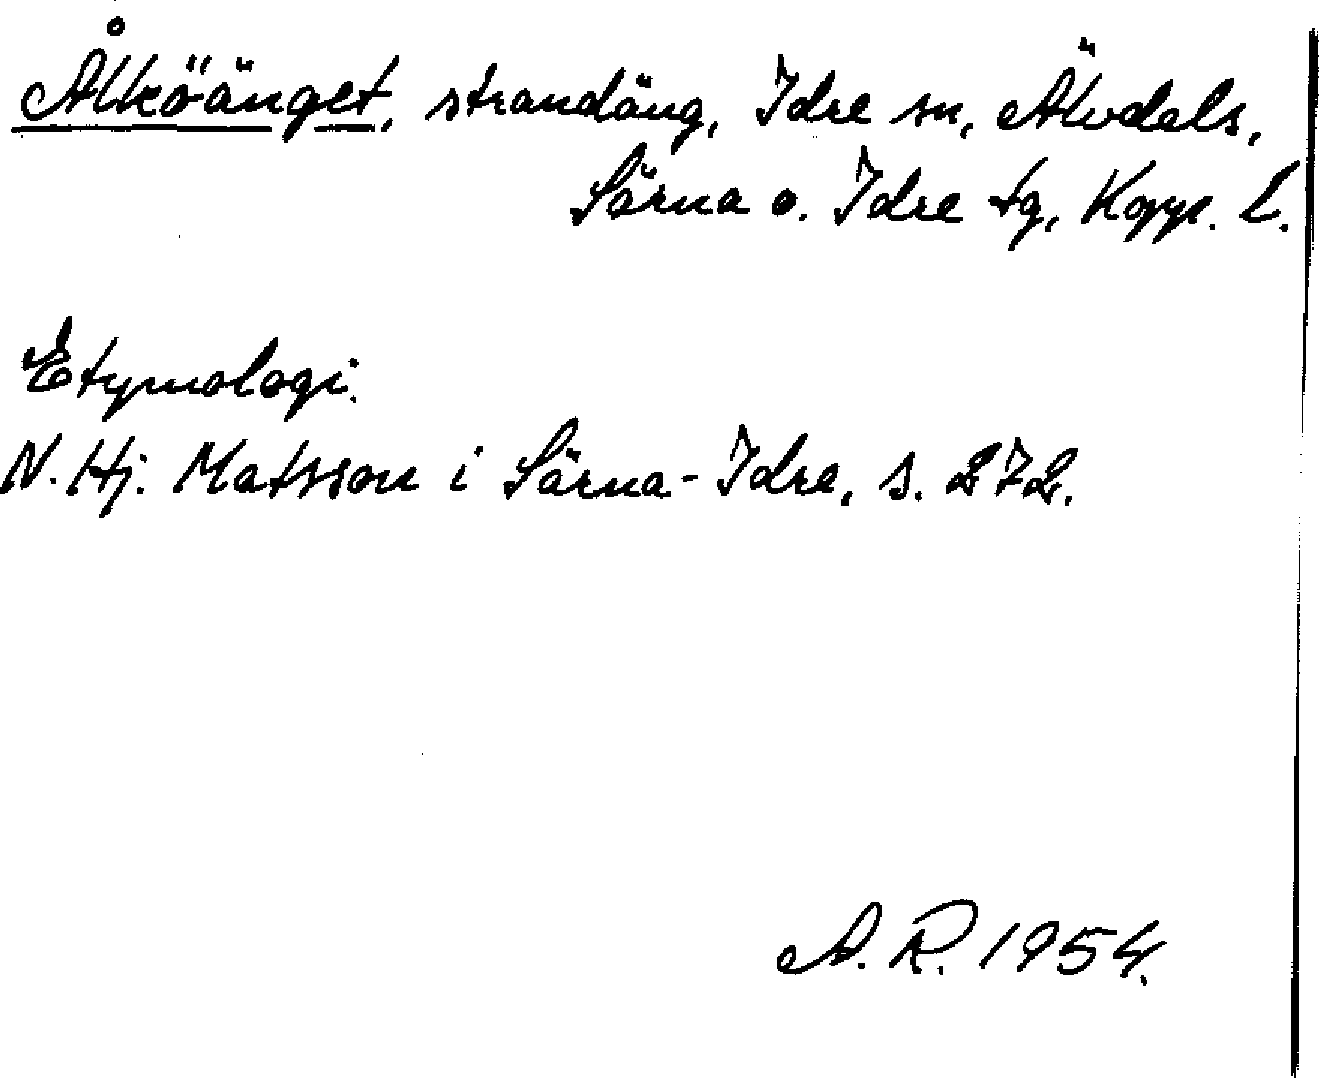 Ålköänget, strandäng, Idre sn, Älvdals,
Särna o. Idre tg, Kopp. L.
Etymologi.
N. Hj. Matsson i Särna-Idre, s. 272.
A. R. 1954.